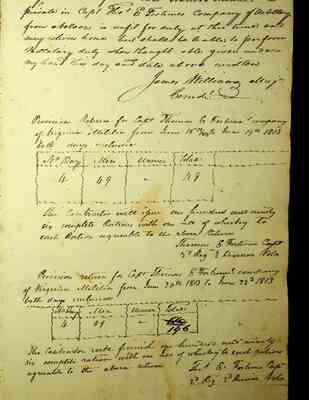 private in Capt Thos E Fortunes Company of
from is unfit for duty at this time and
may return home but shall be liable to perform
Military duty when thought able given under
my hand this day and date above written
James Williams Maj
Comdt
Provision Return for Capt Thomas E Fortunes Company
of Virginia Militia from June 16th to June 19th 1813
both days inclusive
No. Days Men Women Total
4 49 " 49
The Contractor will issue one hundred and ninety
six complete Rations with one of whiskey to
each Ration agreeable to the above Return
Thomas E Fortune Capt
2d Reg 2d
Provision return for Capt Thomas E Fortunes company
of Virginia Militia from June 20th 1813 to June 23d 1813
both days inclusive
Days Men Women Total
4 49 " 196
The Contractor will furnish one hundred and ninety
six complete rations with one of whiskey to each ration
agreeable to the above return
Thos E. Fortune Capt
2d Reg 2d